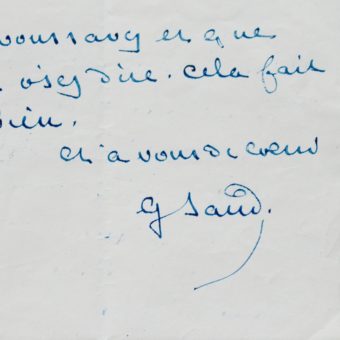 vous savez et que
osez dire. cela fait
bien.
et à vous de coeur
G Sand.